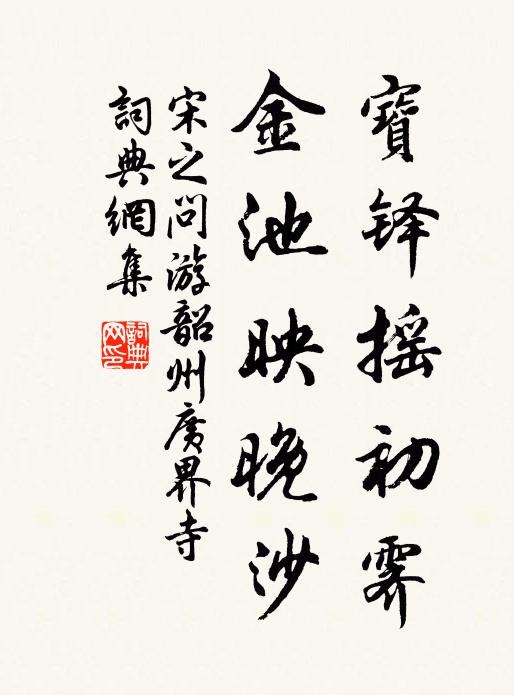 寶铎摇初霁
金池映晚沙
宋之问游韶州廣界寺
詞典網集
詞典网印